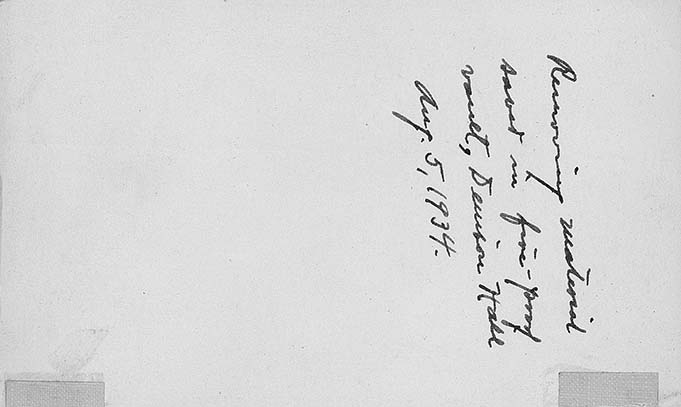 Removing material
saved in fire-proof
vault, Denison Hall
Aug. 5, 1934.